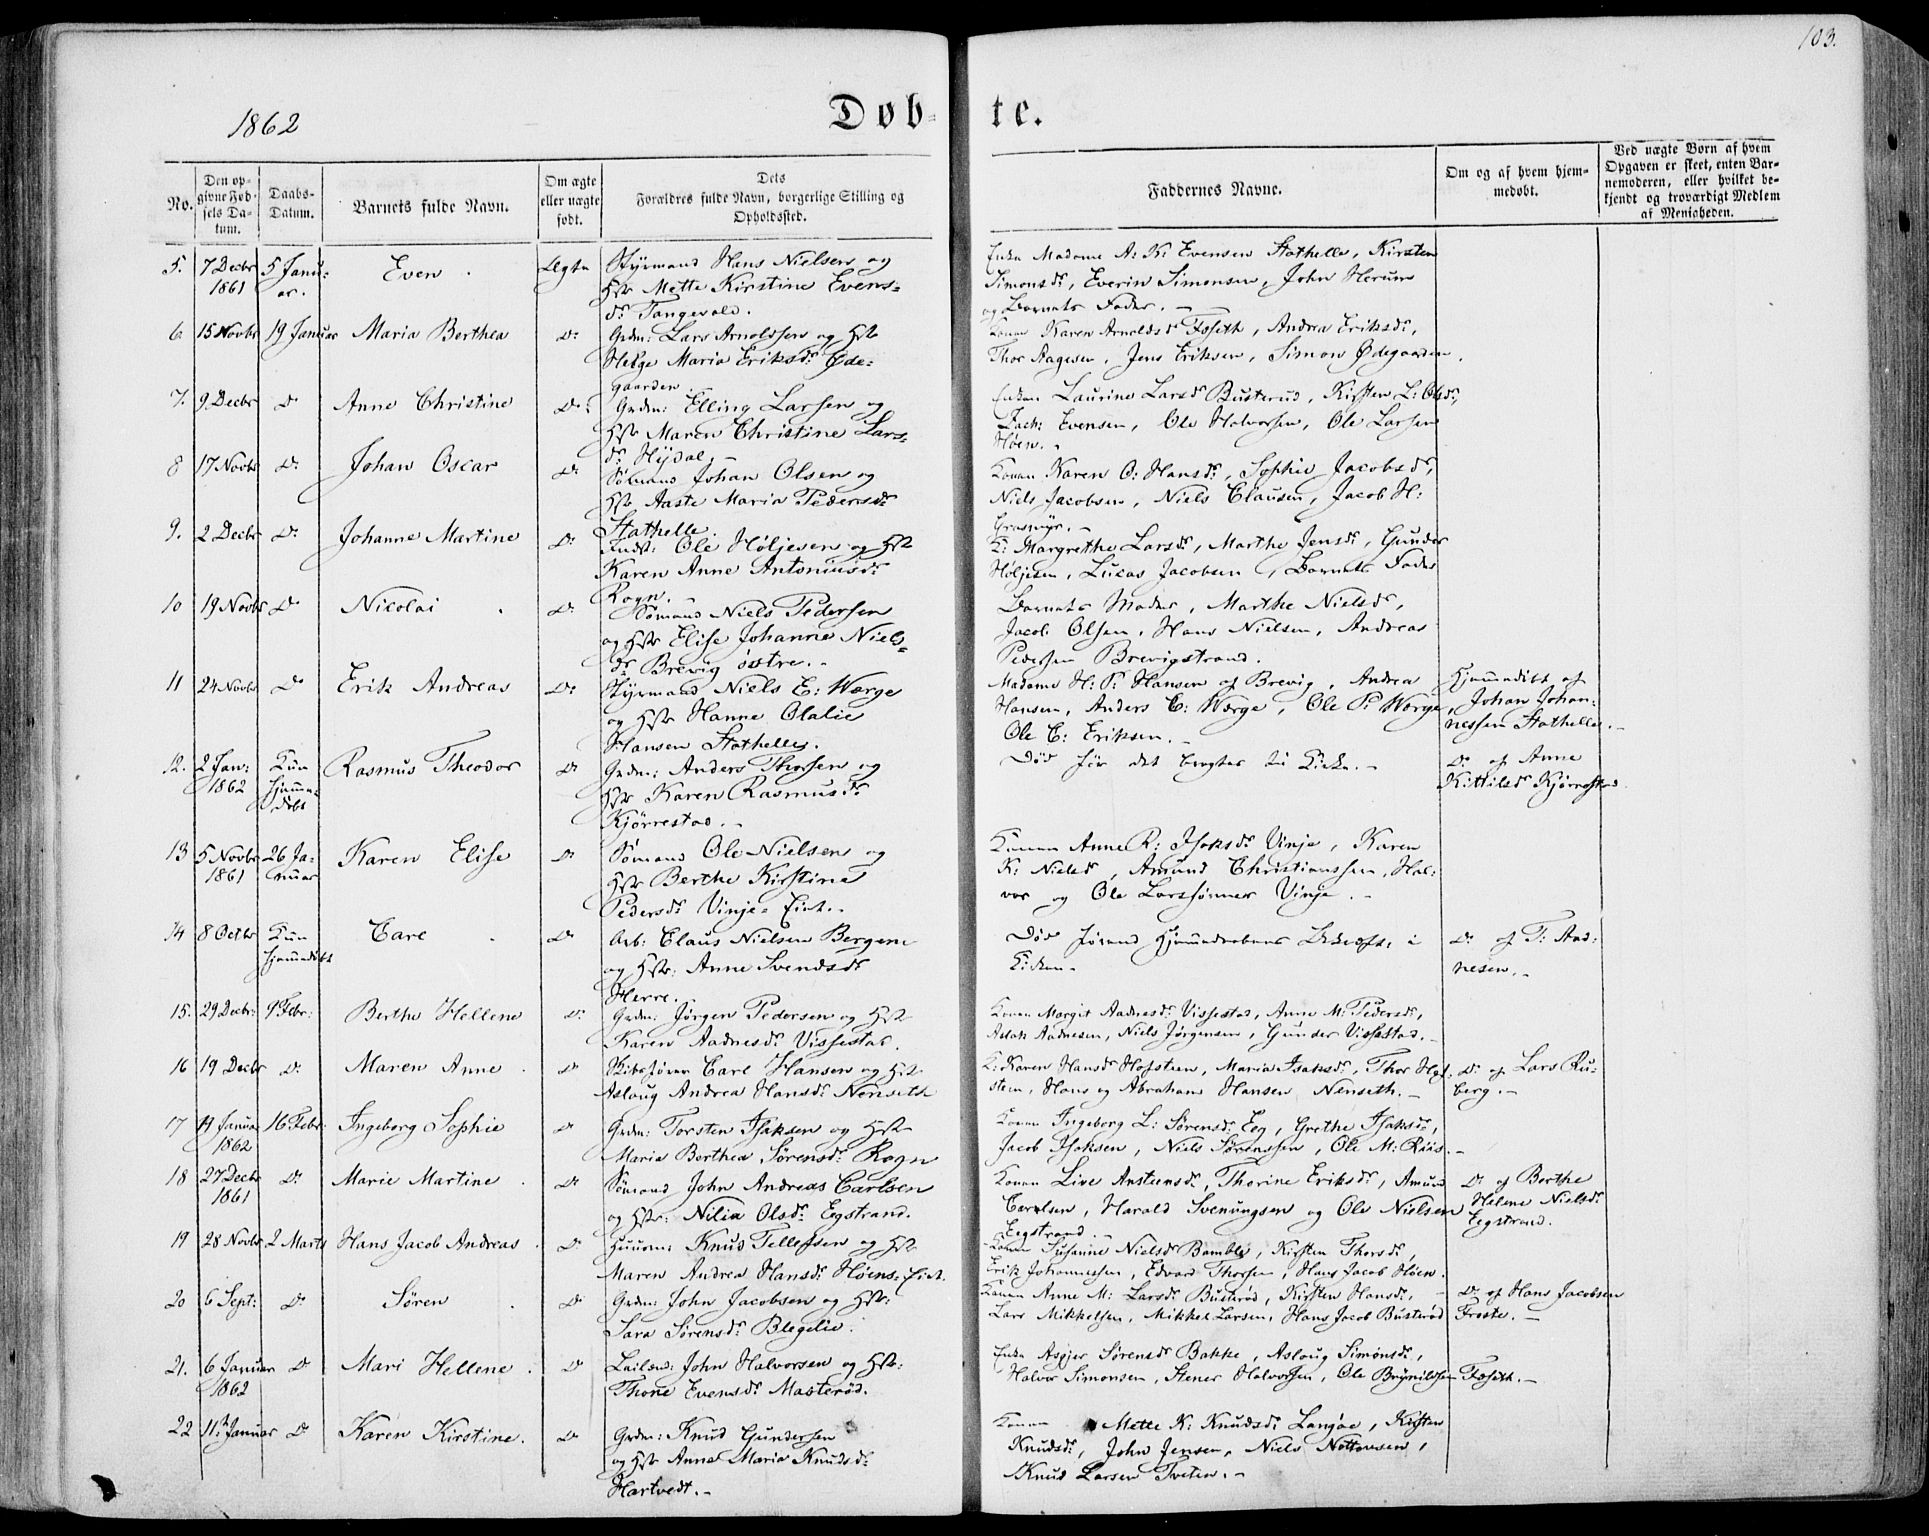 103.
1862
Døb- te.
No.
Den op-
givne Fød-
sels Da-
tum.
Daabs-
Datum.
Barnets fulde Navn.
Om ægte
eller uægte
født.
Dets
Forældres fulde Navn, borgerlige Stilling og
Opholdssted.
Faddernes Navne.
Om og af hvem hjem-
medøbt.
Ved uægte Børn af hvem
Opgaven er skeet, enten Bar-
nemoderen, eller hvilket be-
kjendt og troværdigt Medlem
af Menigheden.
5. 7 Decbr 1861 5 Janu-
ar. Even. Ægte Styrmand Hans Nielsen og
Hst Mette Kirstine Evens-
dr Tangevald.
Enke Madame A. K. Evensen Stathelle, Kirsten
Simonsdr, Everin Simonsen, John Herum
og Barnets Fader. -
6 15 Novbr 19 Januar Maria Berthea Do Grdm: Lars Arnoldssen og Hst
Helge Maria Eriksdr Øde-
gaarden
Konen Karen Arnoldsdr Fosseth, Andrea Eriksdr,
Thor Aagesen, Jens Eriksen, Simon Ødegaarden.
7. 9 Decbr Do Anne Christine Do Grdm: Elling Larsen og
Hst Maren Christine Lars-
dr Hydal. -
Enken Laurine Larsdr Busterud, Kirsten L: Olsdr,
Zach: Evensen, Ole Halvorsen, Ole Larsen
Høen. -
8 17 Novbr Do Johan Oscar Do Sømand Johan Olsen og
Hst Aaste Maria Pedersdr
Stathelle.
Konen Karen O: Hansdr, Sophie Jacobsdr,
Niels Jacobsen, Niels Clausen, Jacob H:
Grasmyr. -
9. 2 Decbr Do Johanne Martine Do Indst: Ole Høljesen og Hst
Karen Anne Antoniusdr
Rogn.
K: Margrethe Larsdr, Marthe Jensdr, Gunder
Høljesen, Lucas Jacobsen, Barnets Fader
10 19 Novbr Do Nicolai. Do Sømand Niels Pedersen
og Hst Elise Johanne Niels-
dr Brevig østre. -
Barnets Moder, Marthe Nielsdr,
Jacob Olsen, Hans Nielsen, Andreas
Pedersen Brevigstrand.
11 24 Novbr Do Erik Andreas Do Styrmand Niels E: Wærge
og Hst Hanne Olalie
Hansen Stathelle.
Madame H: P: Hansen af Brevig, Andrea
Hansen, Anders E: Wærge, Ole P: Wærge,
Ole E: Eriksen. -
Hjemmedøbt af
Johan Johan-
nessen Stathelle. -
12. 2 Jan: 1862 Kun
hjemme-
døbt Rasmus Theodor Do Grdm: Anders Thorsen og
Hst Karen Rasmusdr
Kjørrestad. -
Død før det bragtes til Kirke. -
Do af Anne
Kittilsdr Kjørrestad.
13 5 Novbr 1861 26 Ja-
nuar Karen Elise Do Sømand Ole Nielsen og
Hst Berthe Kirstine
Pedersdr Vinje-Eiet. -
Konen Anne R: Isaksdr Vinje, Karen
K: Nielsdr, Amund Christianssen, Hal-
vor og Ole Larssønner Vinje. -
14 8 Octbr Kun
hjemmedøbt Carl. Do Arb: Claus Nielsen Bergene
og Hst: Anne Svendsdr
Herre.
Død førend Hjemmedaabens Bekræft: i
Kirken. -
Do af T: Aad-
nesen. -
15. 29 Decbr: 9 Febr: Berthe Hellene Do Grdm: Jørgen Pedersen og Hst
Karen Aadnesdr Vissestad.
Konen Margit Aadnesdr Vissestad, Anne M: Pedersdr,
Aslak Aadnesen, Niels Jørgensen, Gunder Vissestad. -
16 19 Decbr Do Maren Anne. Do Skibsfører Carl Hansen og Hst
Aslaug Andrea Hansdr Nenseth
K: Karen Hansdr Hofsten, Maria Isaksdr, Thor Hof-
sten, Hans og Abraham Hansen Nenseth. -
Do af Lars Ru-
berg. -
17 14 Januar 1862 16 Febr: Ingeborg Sophie Do Grdm: Torsten Isaksen og Hst
Maria Berthea Sørensdr Rogn
Konen Ingeborg L: Sørensdr Eeg, Grethe Isaksdr,
Jacob Isaksen, Niels Sørenssen, Ole M: Raas. -
18 27 Decbr 1861 Do Marie Martine. Do Sømand John Andreas Carlsen
og Hst: Nilia Olsdr Eegstrand.
Konen Live Anstensdr, Thorine Eriksdr, Amund
Carlsen, Harald Svenungsen og Ole Nielsen
Eegstrand. -
Do af Berthe
Helene Nielsdr
Eegstrand.
19 28 Novbr 2 Marts Hans Jacob Andreas. Do Huusm: Knud Tellefsen og Hst
Maren Andrea Hansdr Høens-Eiet.
Konen Susanne Nielsdr Bamble, Kirsten Thorsdr,
Erik Johannessen, Edvard Thorsen, Hans Jacob Høen.
20 6 Sept: Do Søren. Do Grdm: John Jacobsen og Hst:
Sara Sørensdr Blegelie.
Konen Anne M: Larsdr Busterød, Kirsten Hansdr, -
Lars Mikkelsen, Mikkel Larsen, Hans Jacob Busterød
Do af Hans Jacobsen
Froste. -
21. 6 Januar 1862 Do Mari Hellene. Do Leilænd: John Halvorsen og Hst:
Thone Evensdr Masterød.
Enke Asgjer Sørensdr Bakke, Aslaug Simonsdr,
Halvor Simonsen, Stener Halvorsen, Ole Brynildsen Fosseth. -
22 11. Januar Do Karen Kirstine. Do Grdm: Knud Gundersen
og Hst Anne Maria Knudsdr
Hartvedt. -
Konen Mette K: Knudsdr Langøe, Kirsten
Knudsdr, John Jensen, Niels Nottovsen,
Knud Larsen Tveten. -